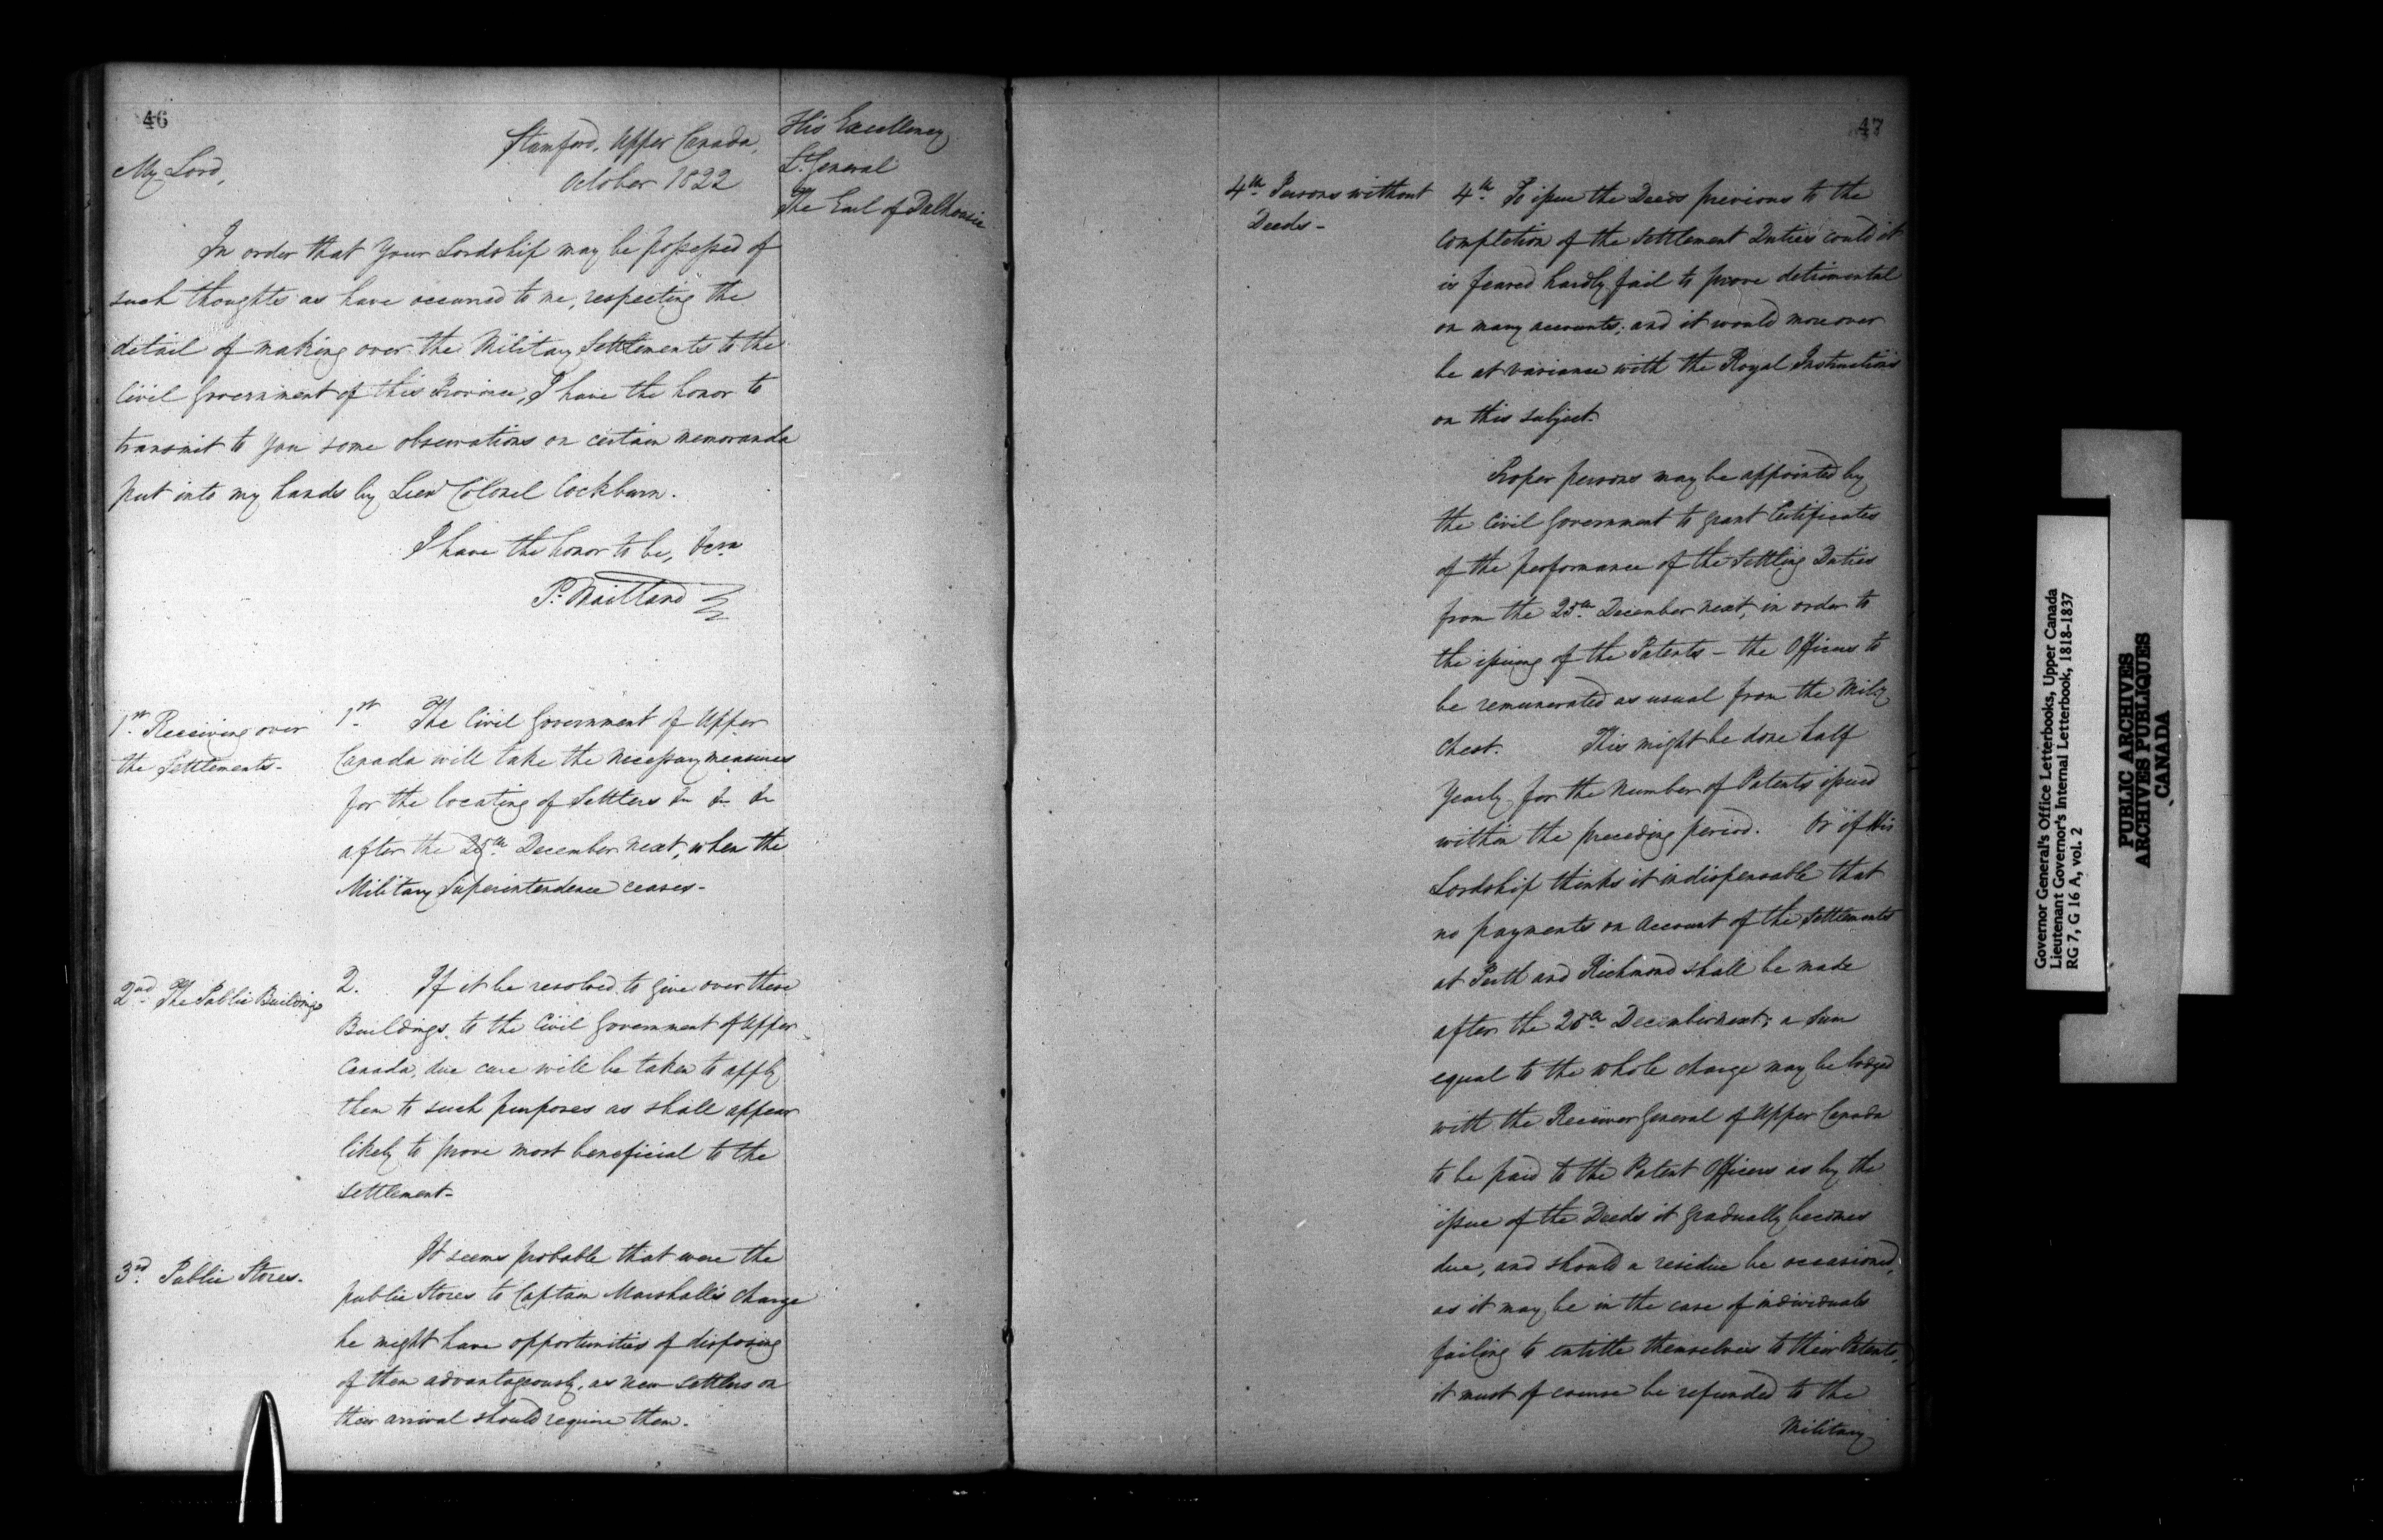 46
Stamford, Upper Canada,
October 1822
My Lord,
His Excellency
Lt. General
The Earl of Dalhousie
In order that Your Lordship may be possessed of
such thoughts as have occurred to me, respecting the
detail of making over the Military Settlements to the
Civil Government of this Province, I have the honor to
transmit to you some observations on certain memoranda
put into my hands by Lieut Colonel Cockburn.
I have the honor to be,
P. Maitland
1st. Receiving over
the Settlements-
1st. The Civil Government of Upper
Canada will take the necessary measures
for the locating of Settlers &c &c &c
after the 25th. December next, when the
Military Superintendence ceases-
2nd. The Public Buildings
2. If it be resolved to give over these
Buildings to the Civil Government of Upper
Canada, due care will be taken to apply
them to such purposes as shall appear
likely to prove most beneficial to the
settlement-
3rd. Public Stores.
It seems probable that were the
public Stores to Captain Marshall's charge
he might have opportunities of disposing
of them advantageously, as new settlers on
their arrival should require them.
47
4th. Persons without
Deeds-
4th. To issue the Deeds previous to the
completion of the Settlement Duties could it
is feared hardly fail to prove detrimental
on many accounts; and it would moreover
be at variance with the Royal Instructions
on this subject.
Proper persons may be appointed by
the Civil Government to grant Certificates
of the performance of the Settling Duties
from the 25th. December next, in order to
the issuing of the Patents - the Officers to
be remunerated as usual from the Mily.
Chest. This might be done half
Yearly for the number of Patents issued
within the preceding period. Or if His
Lordship thinks it indispensable that
no payments on Account of the Settlements
at Perth and Richmond shall be made
after the 25th. December next; a Sum
equal to the whole charge may be lodged
with the Receiver General of Upper Canada
to be paid to the Patent Officers as by the
issue of the Deeds it gradually becomes
due, and should a residue be occasioned,
as it may be in the case of individuals
failing to entitle themselves to their Patents,
it must of course be refunded to the
Military
Governor General's Office Letterbooks, Upper Canada
Lieutenant Governor's Internal Letterbook, 1818-1837
RG 7, G 16 A, vol. 2
PUBLIC ARCHIVES
ARCHIVES PUBLIQUES
CANADA